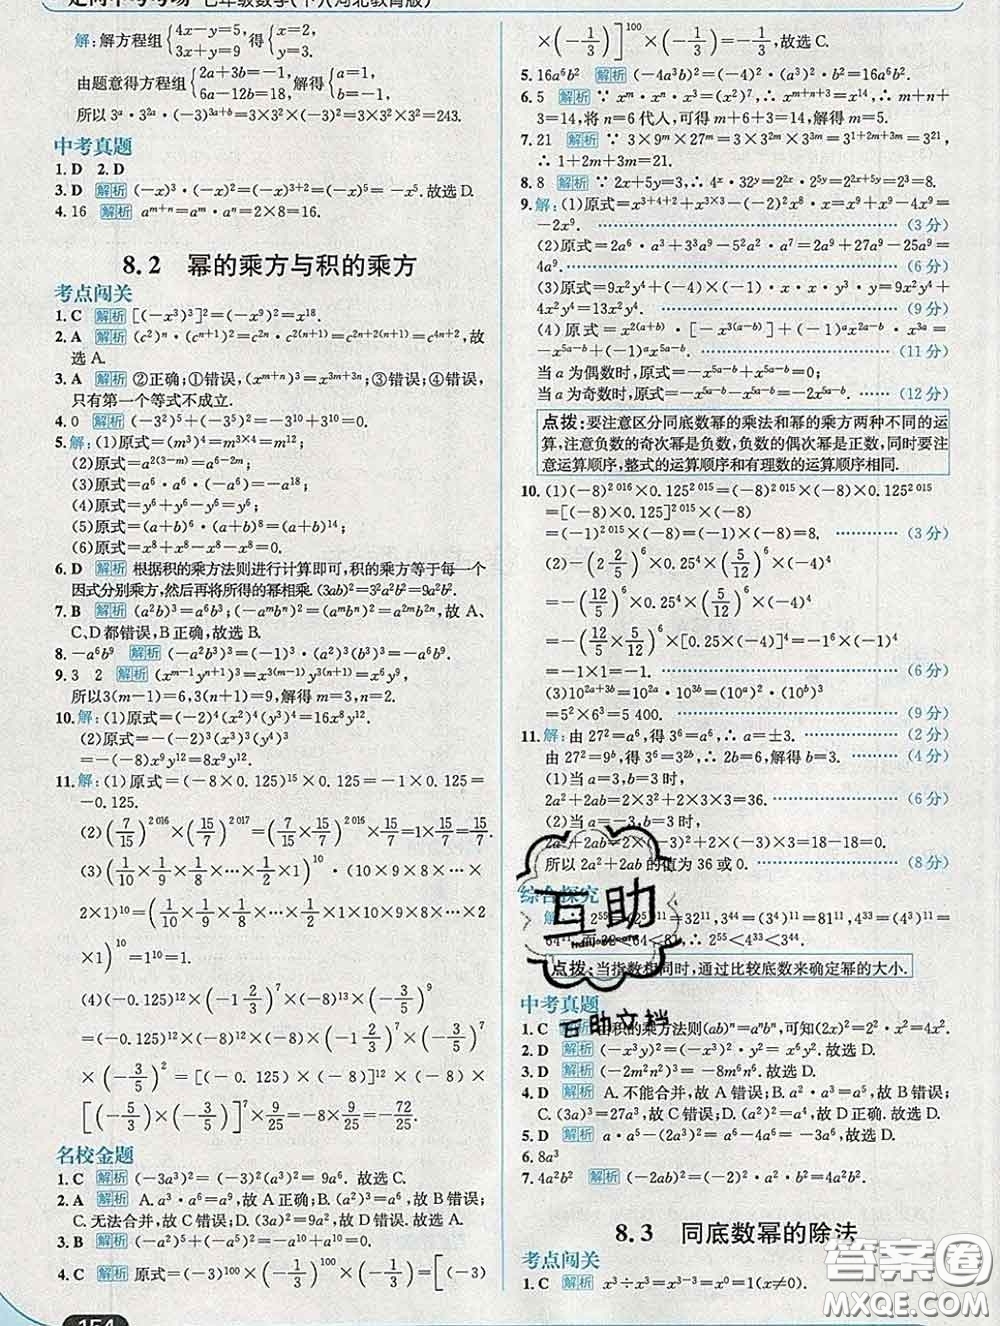 走向中考考场 七年级数学(下)(河北教育版)
解:解方程组{4x-y=5, 3x+y=9 得{x=2, y=3.
由题意得方程组{2a+3b=-1, 6a-12b=18, 解得{a=1, b=-1.
所以3^a·3^{2a}·(-3)^{3a+b}=3×3²×(-3)²=3×9×9=243.
中考真题
1. D 2. D
3. D 解析 (-x)³·(-x)²=(-x)^{3+2}=(-x)⁵=-x⁵.故选D.
4. 16 解析 a^{m+n}=a^m·a^n=2×8=16.
8.2 幂的乘方与积的乘方
考点闯关
1. C 解析 [(-x³)³]²=(-x⁹)²=x¹⁸.
2. A 解析 (c²)^n·(c^{n+1})²=c^{2n}·c^{2(n+1)}=c^{2n+2(n+1)}=c^{4n+2},故
选A.
3. A 解析 ②正确;①错误,(x^{m+n})³=x^{3m+3n};③错误;④错误,
只有第一个等式不成立.
4. 0 解析 (-3²)⁵+(-3⁵)²=-3¹⁰+3¹⁰=0.
5. 解:(1)原式=(m³)⁴=m^{3×4};
(2)原式=a^{2(3-m)}=a^{6-2m};
(3)原式=a⁶·a⁶·(-a⁶)=-a¹⁸;
(4)原式=y⁶+y⁶=2y⁶;
(5)原式=(a+b)⁶·(a+b)⁸=(a+b)¹⁴;
(6)原式=x⁸+x⁸-x⁸-x⁸=0.
6. D 解析 根据积的乘方法则进行计算即可,积的乘方等于每一个
因式分别乘方,然后再将所得的幂相乘.(3ab)²=3²a²b²=9a²b².
7. B 解析 (a²b)³=a⁶b³;(-a^m b^n)²=(a^m b^n)²=a^{2m}b^{2n},故A、
C、D都错误,B正确,故选B.
8. -a⁶b⁹ 解析 (-a²b³)³=(-1)³·(a²)³(b³)³=-a⁶b⁹.
9. 3 2 解析 (x^{m-1}y^{n+1})³=x^{3(m-1)}y^{3(n+1)}=x⁶y⁹,
所以3(m-1)=6,3(n+1)=9,解得m=3,n=2.
10. 解:(1)原式=(-2)⁴(x²)⁴(y²)⁴=16x⁸y⁸.
(2)原式=-(-2)³(x³)³(y⁴)³
=-(-8)x⁹y¹²=8x⁹y¹².
11. 解:(1)原式=(-8×0.125)¹⁵×0.125=-1×0.125=
-0.125.
(2)(7/15)^{2016}×(15/7)^{2017}=(7/15×15/7)^{2016}×15/7=1×15/7=15/7.
(3)(1/10×1/9×1/8×…×1/2×1)¹⁰·(10×9×8×…×
2×1)¹⁰=(1/10×1/9×1/8×…×1/2×1×10×9×8×…×2
×1)¹⁰=1¹⁰=1.
(4)(-0.125)¹²×(-1 2/3)⁷×(-8)¹³×(-3/5)⁹
=(-0.125)¹²×(-8)¹³×(-1 2/3)⁷×(-3/5)⁷×
(-3/5)²=[(-0.125)×(-8)]¹²×(-8)×
[(-5/3)×(-3/5)]⁷×9/25=-8×9/25=-72/25.
名校金题
1. C 解析 (-3a³)²=(-3)²(a³)²=9a⁶.故选C.
2. A 解析 A.a³·a⁶=a⁹,故A正确;B.(a²)³=a⁶,故B错误;
C.无法合并,故C错误;D.(3a)²=9a²,故D错误.故选A.
3. B 解析 (-a²)⁵+(-a⁵)²=-a¹⁰+a¹⁰=0.
4. C 解析 原式=(-3)^{100}×(-1/3)^{100}×(-1/3)=[(-3)
×(-1/3)]^{100}×(-1/3)=-1/3,故选C.
5. 16a⁶b² 解析 (-4a³b)²=(-4)²·(a³)²·b²=16a⁶b².
6. 5 解析 ∵x^m·x^n·x³=(x²)⁷,∴x^{m+n+3}=x¹⁴,∴m+n+
3=14,将n=6代人,可得m+6+3=14,解得m=5.
7. 21 解析 ∵3×9^m×27^m=3×3^{2m}×3^{3m}=3^{1+2m+3m}=3²¹,
∴1+2m+3m=21.
8. 8 解析 ∵2x+5y=3,∴4^x·32^y=2^{2x}·2^{5y}=2^{2x+5y}=2³=8.
9. 解:(1)原式=x^{3+4+2}+x^{3×3}-(-2)²x⁸·x=x⁹+x⁹-4x⁹=
-2x⁹. (3分)
(2)原式=2a⁶·a³+3a⁹-5a²·a⁷=2a⁹+27a⁹-25a⁹=
4a⁹. (6分)
(3)原式=9x²y⁴+(-4)×(-1)·x·x·y³·y=9x²y⁴+
4x²y⁴=13x²y⁴. (9分)
(4)原式=x^{2(a+b)}·[-x^{3(a-b)}]+(-1)^a x^{2a-b}·x^{3a}=
-x^{5a-b}+(-1)^a x^{5a-b}. (11分)
当a为偶数时,原式=-x^{5a-b}+x^{5a-b}=0;
当a为奇数时,原式=-x^{5a-b}-x^{5a-b}=-2x^{5a-b}. (12分)
点拨:要注意区分同底数幂的乘法和幂的乘方两种不同的运
算,注意负数的奇次幂是负数,负数的偶次幂是正数,同时要注
意运算顺序,整式的运算顺序和有理数的运算顺序相同.
10. (1)(-8)^{2016}×0.125^{2015}
=[(-8)×0.125]^{2015}×(-8)
=(-1)^{2015}×(-8)=8. (3分)
(2)-(-2 2/5)⁶×0.25⁴×(5/12)⁶×(-4)⁴
=-(12/5)⁶×0.25⁴×(5/12)⁶×(-4)⁴
=-(12/5×5/12)⁶×[0.25×(-4)]⁴=-1⁶×(-1)⁴
=-1×1=-1. (6分)
(3)10^{2a+3b}=10^{2a}·10^{3b}=(10^a)²·(10^b)³
=5²×6³=5 400. (9分)
11. 解:由27²=a⁶,得3⁶=a⁶,∴a=±3. (2分)
由27²=9^b,得3⁶=3^{2b},∴2b=6,解得b=3. (4分)
(1)当a=3,b=3时,
2a²+2ab=2×3²+2×3×3=36. (6分)
(2)当a=-3,b=3时,
2a²+2ab=2×(-3)²+2×(-3)×3=18-18=0.
所以2a²+2ab的值为36或0. (8分)
综合探究
解:2⁵⁵=(2⁵)¹¹=32¹¹,3⁴⁴=(3⁴)¹¹=81¹¹,4³³=(4³)¹¹=
64¹¹,而32<64<81,∴2⁵⁵<4³³<3⁴⁴.
点拨:当指数相同时,通过比较底数来确定幂的大小.
中考真题
1. C 解析 由积的乘方法则(ab)^n=a^n b^n,可知(2x)²=2²·x²=4x².
2. D 解析 (-x³y)²=(-x³)²·y²=x⁶y².故选D.
3. D 解析 (-2m²n²)³=-8m⁶n⁶.故选D.
4. D 解析 A.不能合并,故A错误;B.a²·a³=a⁵,故B错误;
C.(3a)³=27a³,故C错误;D.(a²)²=a⁴,故D正确.故选D.
5. D 解析 a·a³=a⁴.故选D.
6. 8a³
7. 4a²b² 解析 (-2ab)²=(-2)²·a²·b²=4a²b².
8.3 同底数幂的除法
考点闯关
1. C 解析 x³÷x³=x^{3-3}=x⁰=1(x≠0).
154
互助
互助文档
答案圈
MXQE.COM